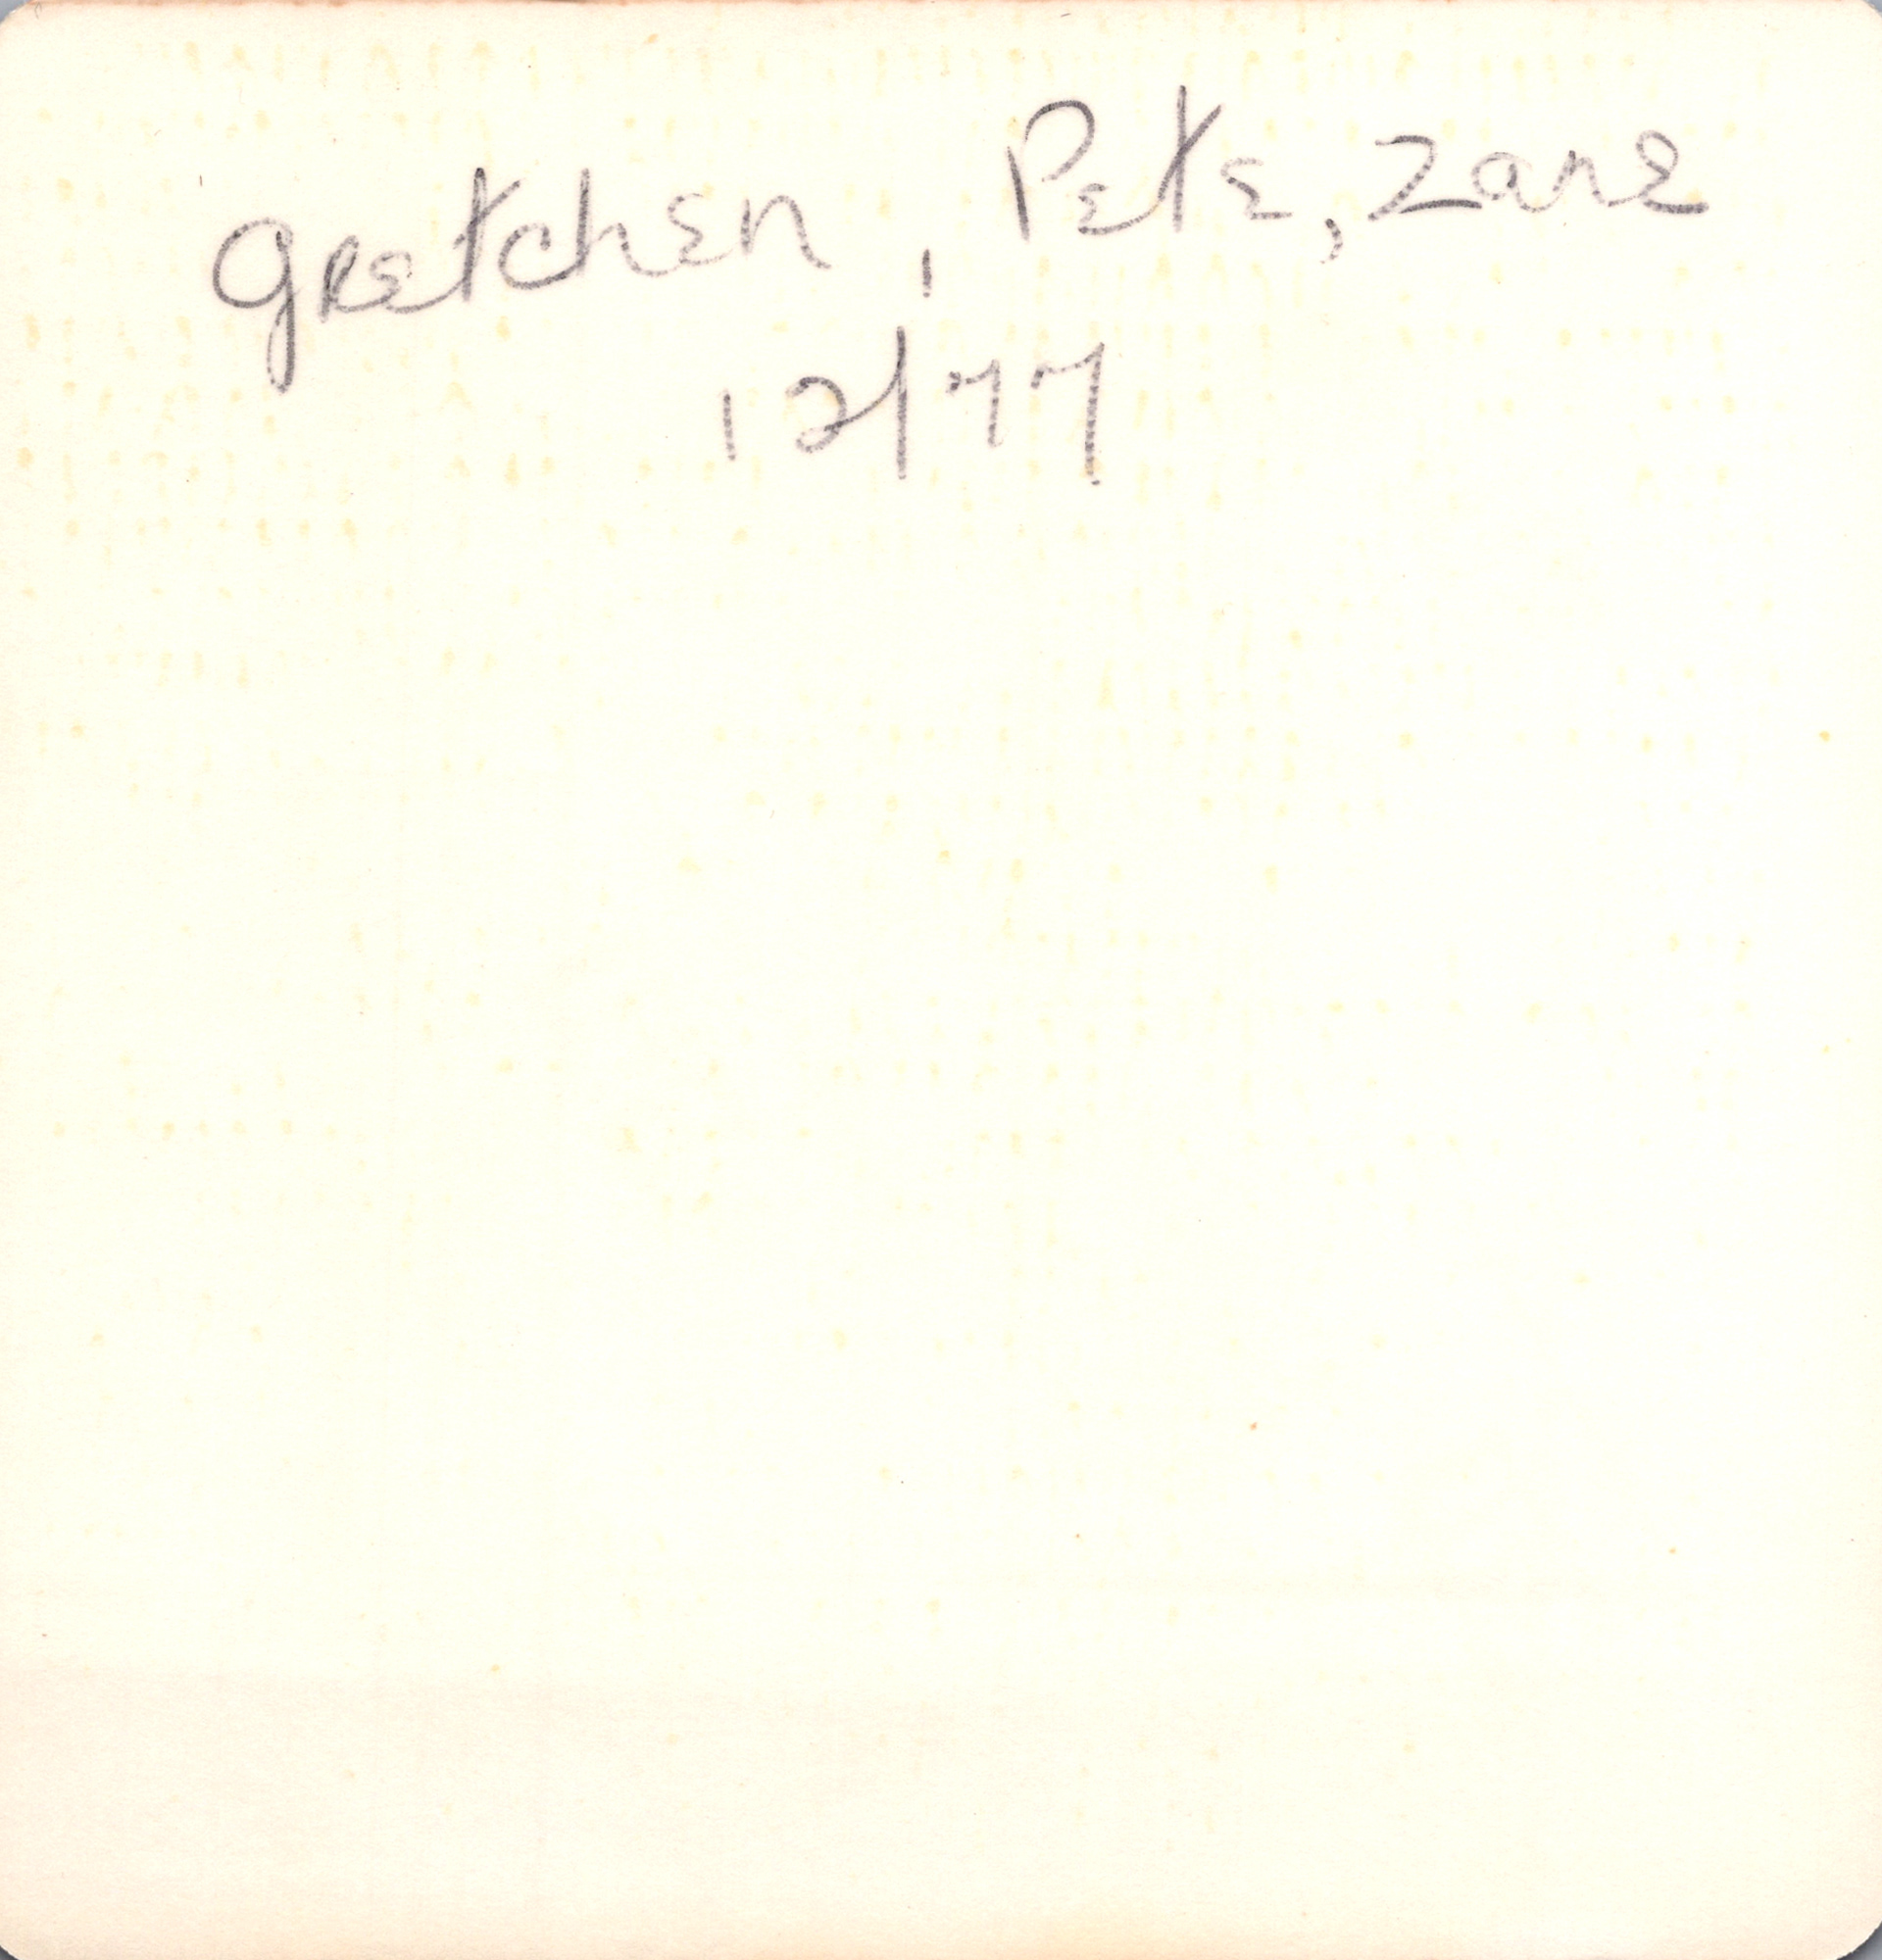 Gretchen, Pete, Zane
12/77